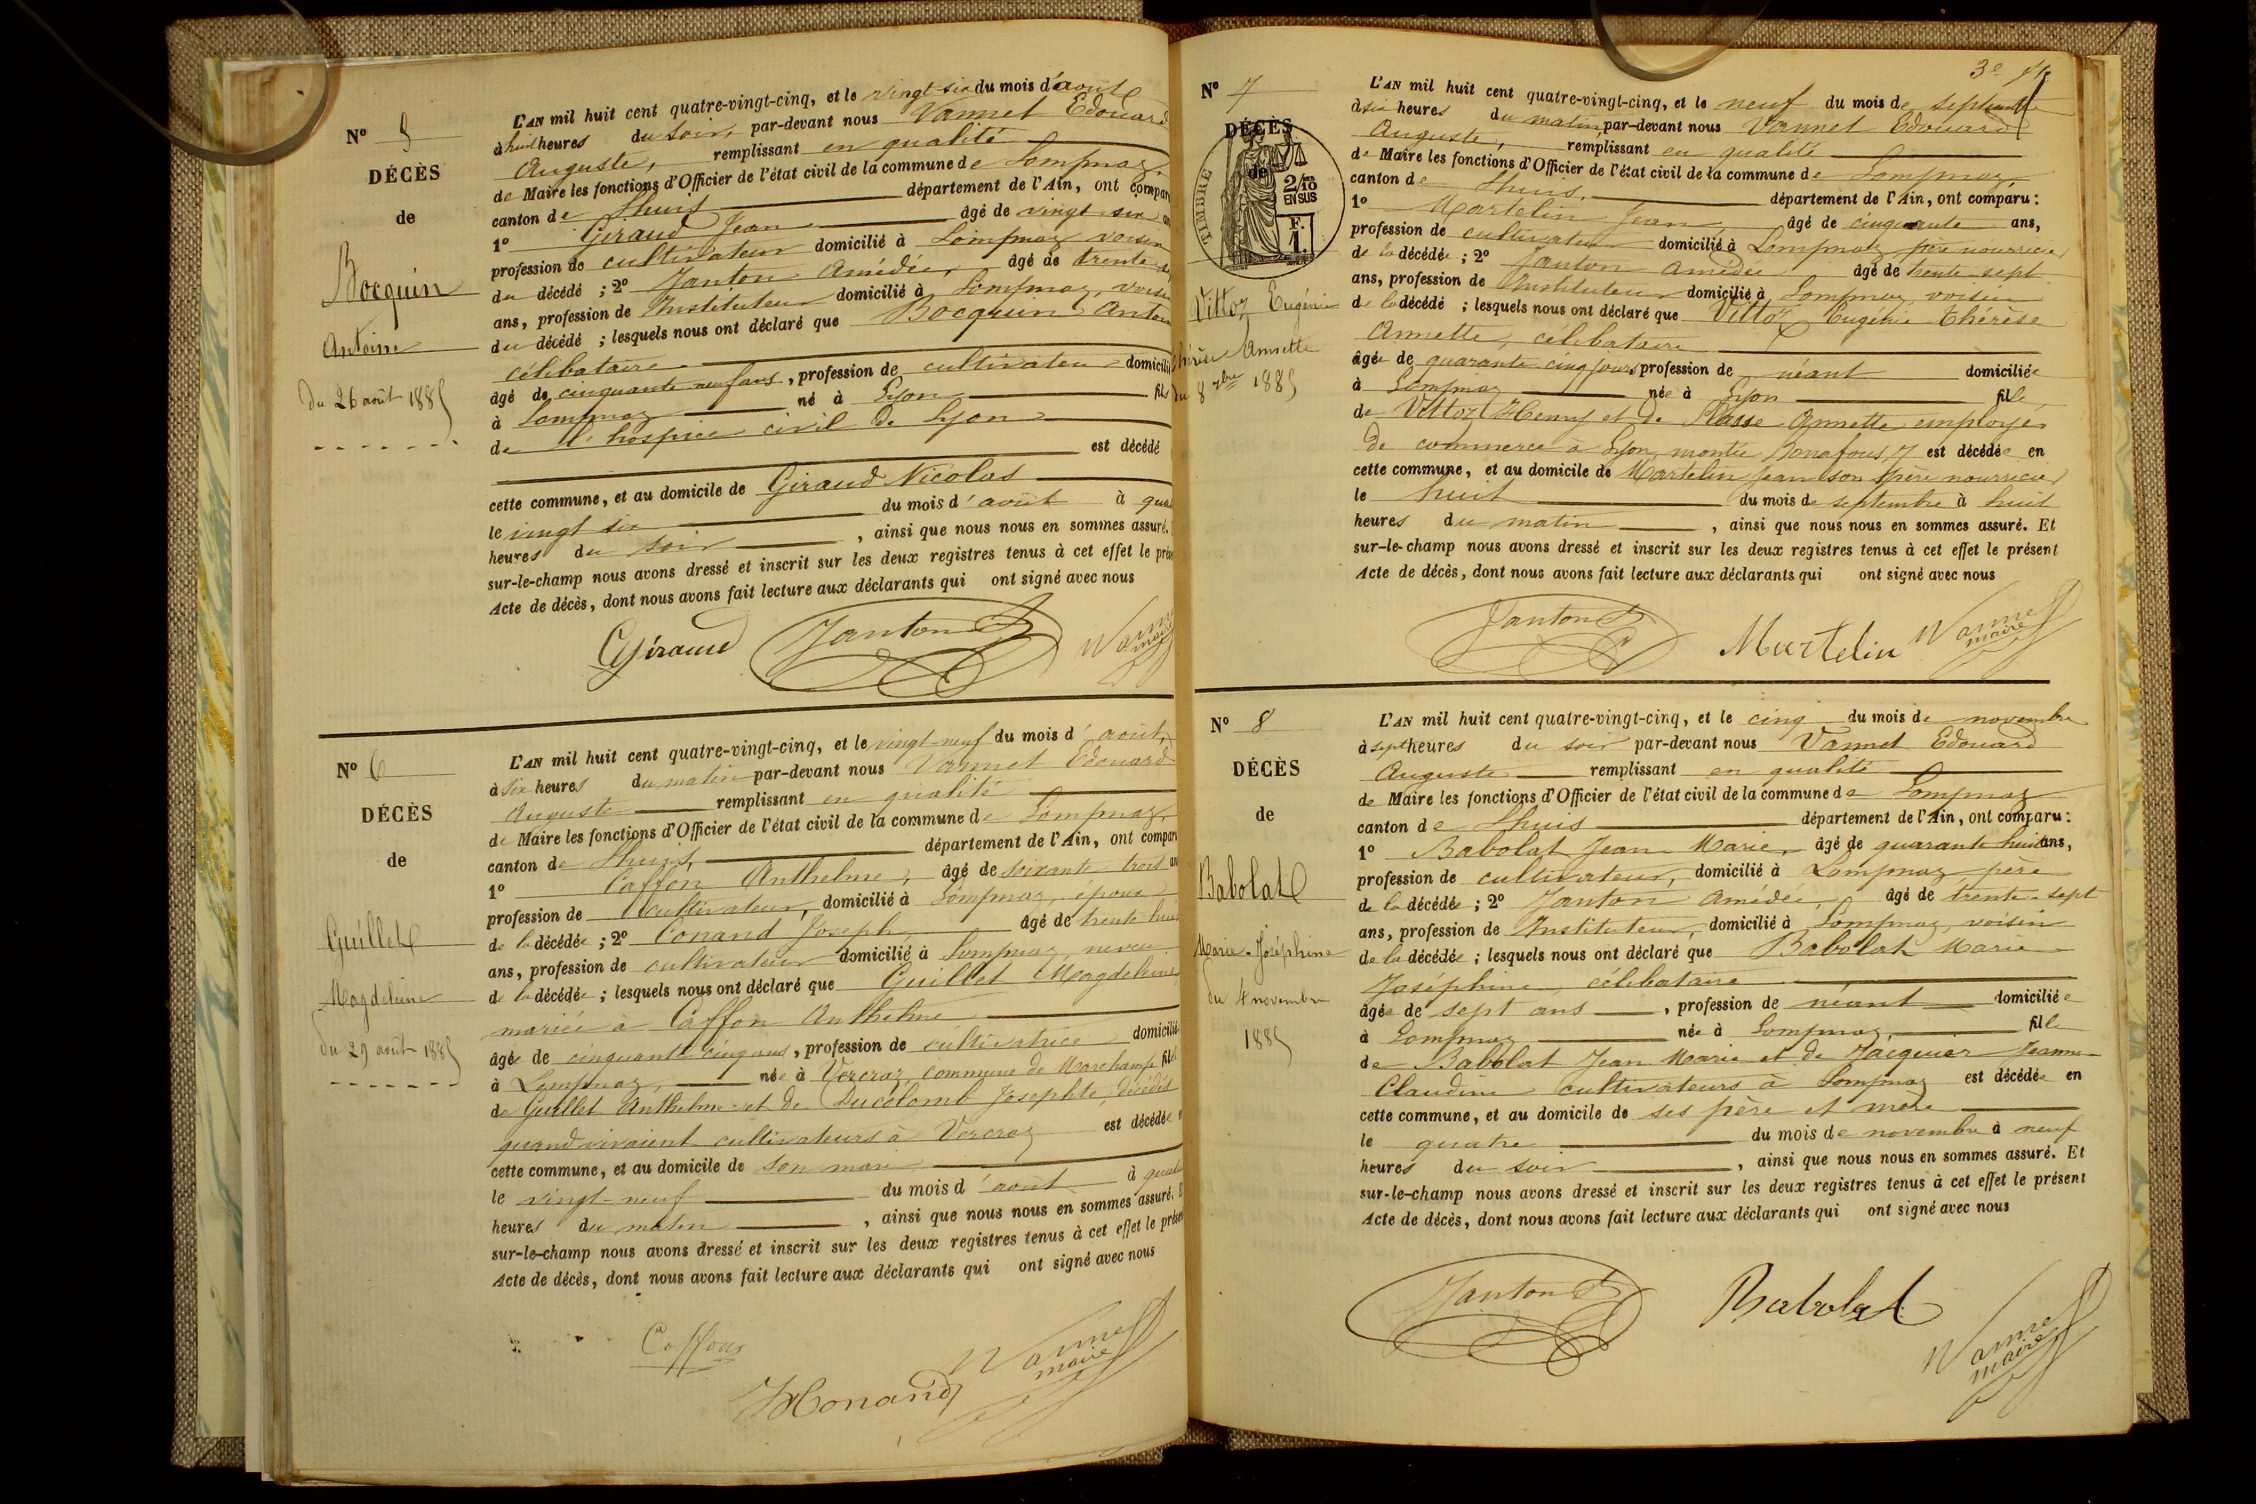 N° 5
DÉCÈS
de
Bocquin
Antoine
du 26 août 1885
L'AN mil huit cent quatre-vingt-cinq, et le vingt-six du mois d'août
à huit heures du soir, par-devant nous Vannet Edouard
Auguste, remplissant en qualité
de Maire les fonctions d'Officier de l'état civil de la commune de Lompnaz,
canton de Lhuis, département de l'Ain, ont compar
1° Giraud Jean âgé de vingt-six an
profession de cultivateur domicilié à Lompnaz voisin
du décédé ; 2° Janton Amédée, âgé de trente-
ans, profession de Instituteur domicilié à Lompnaz, voisin
du décédé ; lesquels nous ont déclaré que Bocquin Antoin
célibataire
âgé de cinquante neuf ans, profession de cultivateur domicilié
à Lompnaz né à Lyon fils
de l'hospice civil de Lyon
est décédé
cette commune, et au domicile de Giraud Nicolas
le vingt six du mois d'août à qua
heures du soir, ainsi que nous nous en sommes assuré.
sur-le-champ nous avons dressé et inscrit sur les deux registres tenus à cet effet le prés
Acte de décès, dont nous avons fait lecture aux déclarants qui ont signé avec nous
Giraud Janton Vannet
maire
N° 6
DÉCÈS
de
Guillet
Magdeleine
du 29 août 1885
L'AN mil huit cent quatre-vingt-cinq, et le vingt-neuf du mois d'août,
à six heures du matin par-devant nous Vannet Edouard
Auguste remplissant en qualité
de Maire les fonctions d'Officier de l'état civil de la commune de Lompnaz,
canton de Lhuis, département de l'Ain, ont compar
1° Caffon Anthelme, âgé de soixante-trois an
profession de cultivateur, domicilié à Lompnaz, époux
de la décédée ; 2° Conand Joseph, âgé de trente huit
ans, profession de cultivateur domicilié à Lompnaz, neveu
de la décédée ; lesquels nous ont déclaré que Guillet Magdeleine
mariée à Caffon Anthelme
âgée de cinquante-cinq ans, profession de cultivatrice domicilié
à Lompnaz, née à Vercraz, commune de Marchamp fille
de Guillet Anthelme et de Ducolomb Josephte, décédés
quand vivaient cultivateurs à Vercraz est décédée
cette commune, et au domicile de son mari
le vingt-neuf du mois d'août à quat
heures du matin, ainsi que nous nous en sommes assuré. E
sur-le-champ nous avons dressé et inscrit sur les deux registres tenus à cet effet le prése
Acte de décès, dont nous avons fait lecture aux déclarants qui ont signé avec nous
Caffon
Conand Vannet
maire
3e
N° 7
DÉCÈS
de
TIMBRE
2/10
EN SUS
F.
1.
Vittoz Eugénie
Thérèse Annette
du 8 7bre 1885
L'AN mil huit cent quatre-vingt-cinq, et le neuf du mois de septembre
à six heures du matin, par-devant nous Vannet Edouard
Auguste, remplissant en qualité
de Maire les fonctions d'Officier de l'état civil de la commune de Lompnaz
canton de Lhuis, département de l'Ain, ont comparu :
1° Martelin Jean, âgé de cinquante ans,
profession de cultivateur domicilié à Lompnaz père nourricier
de la décédée ; 2° Janton Amédée âgé de trente-sept
ans, profession de Instituteur domicilié à Lompnaz voisin
de la décédé ; lesquels nous ont déclaré que Vittoz Eugénie Thérèse
Annette, célibataire
âgée de quarante-cinq jours, profession de néant domiciliée
à Lompnaz née à Lyon fille
de Vittoz Henry et de Annette employés
de commerce à Lyon, montée Bonafous, 7 est décédée en
cette commune, et au domicile de Martelin Jean son père nourricier
le huit du mois de septembre à huit
heures du matin, ainsi que nous nous en sommes assuré. Et
sur-le-champ nous avons dressé et inscrit sur les deux registres tenus à cet effet le présent
Acte de décès, dont nous avons fait lecture aux déclarants qui ont signé avec nous
Janton Martelin Vannet
maire
N° 8
DÉCÈS
de
Babolat
Marie-Joséphine
du 4 novembre
1885
L'AN mil huit cent quatre-vingt-cinq, et le cinq du mois de novembre
à sept heures du soir par-devant nous Vannet Edouard
Auguste remplissant en qualité
de Maire les fonctions d'Officier de l'état civil de la commune de Lompnaz
canton de Lhuis département de l'Ain, ont comparu :
1° Babolat Jean Marie, âgé de quarante huit ans,
profession de cultivateur, domicilié à Lompnaz père
de la décédée ; 2° Janton Amédée, âgé de trente-sept
ans, profession de Instituteur, domicilié à Lompnaz, voisin
de la décédée ; lesquels nous ont déclaré que Babolat Marie
Joséphine célibataire
âgée de sept ans, profession de néant domiciliée
à Lompnaz née à Lompnaz, fille
de Babolat Jean Marie et de Jacquier Jeanne
Claudine cultivateurs à Lompnaz est décédée en
cette commune, et au domicile de ses père et mère
le quatre du mois de novembre à neuf
heures du soir, ainsi que nous nous en sommes assuré. Et
sur-le-champ nous avons dressé et inscrit sur les deux registres tenus à cet effet le présent
Acte de décès, dont nous avons fait lecture aux déclarants qui ont signé avec nous
Janton Babolat Vannet
maire